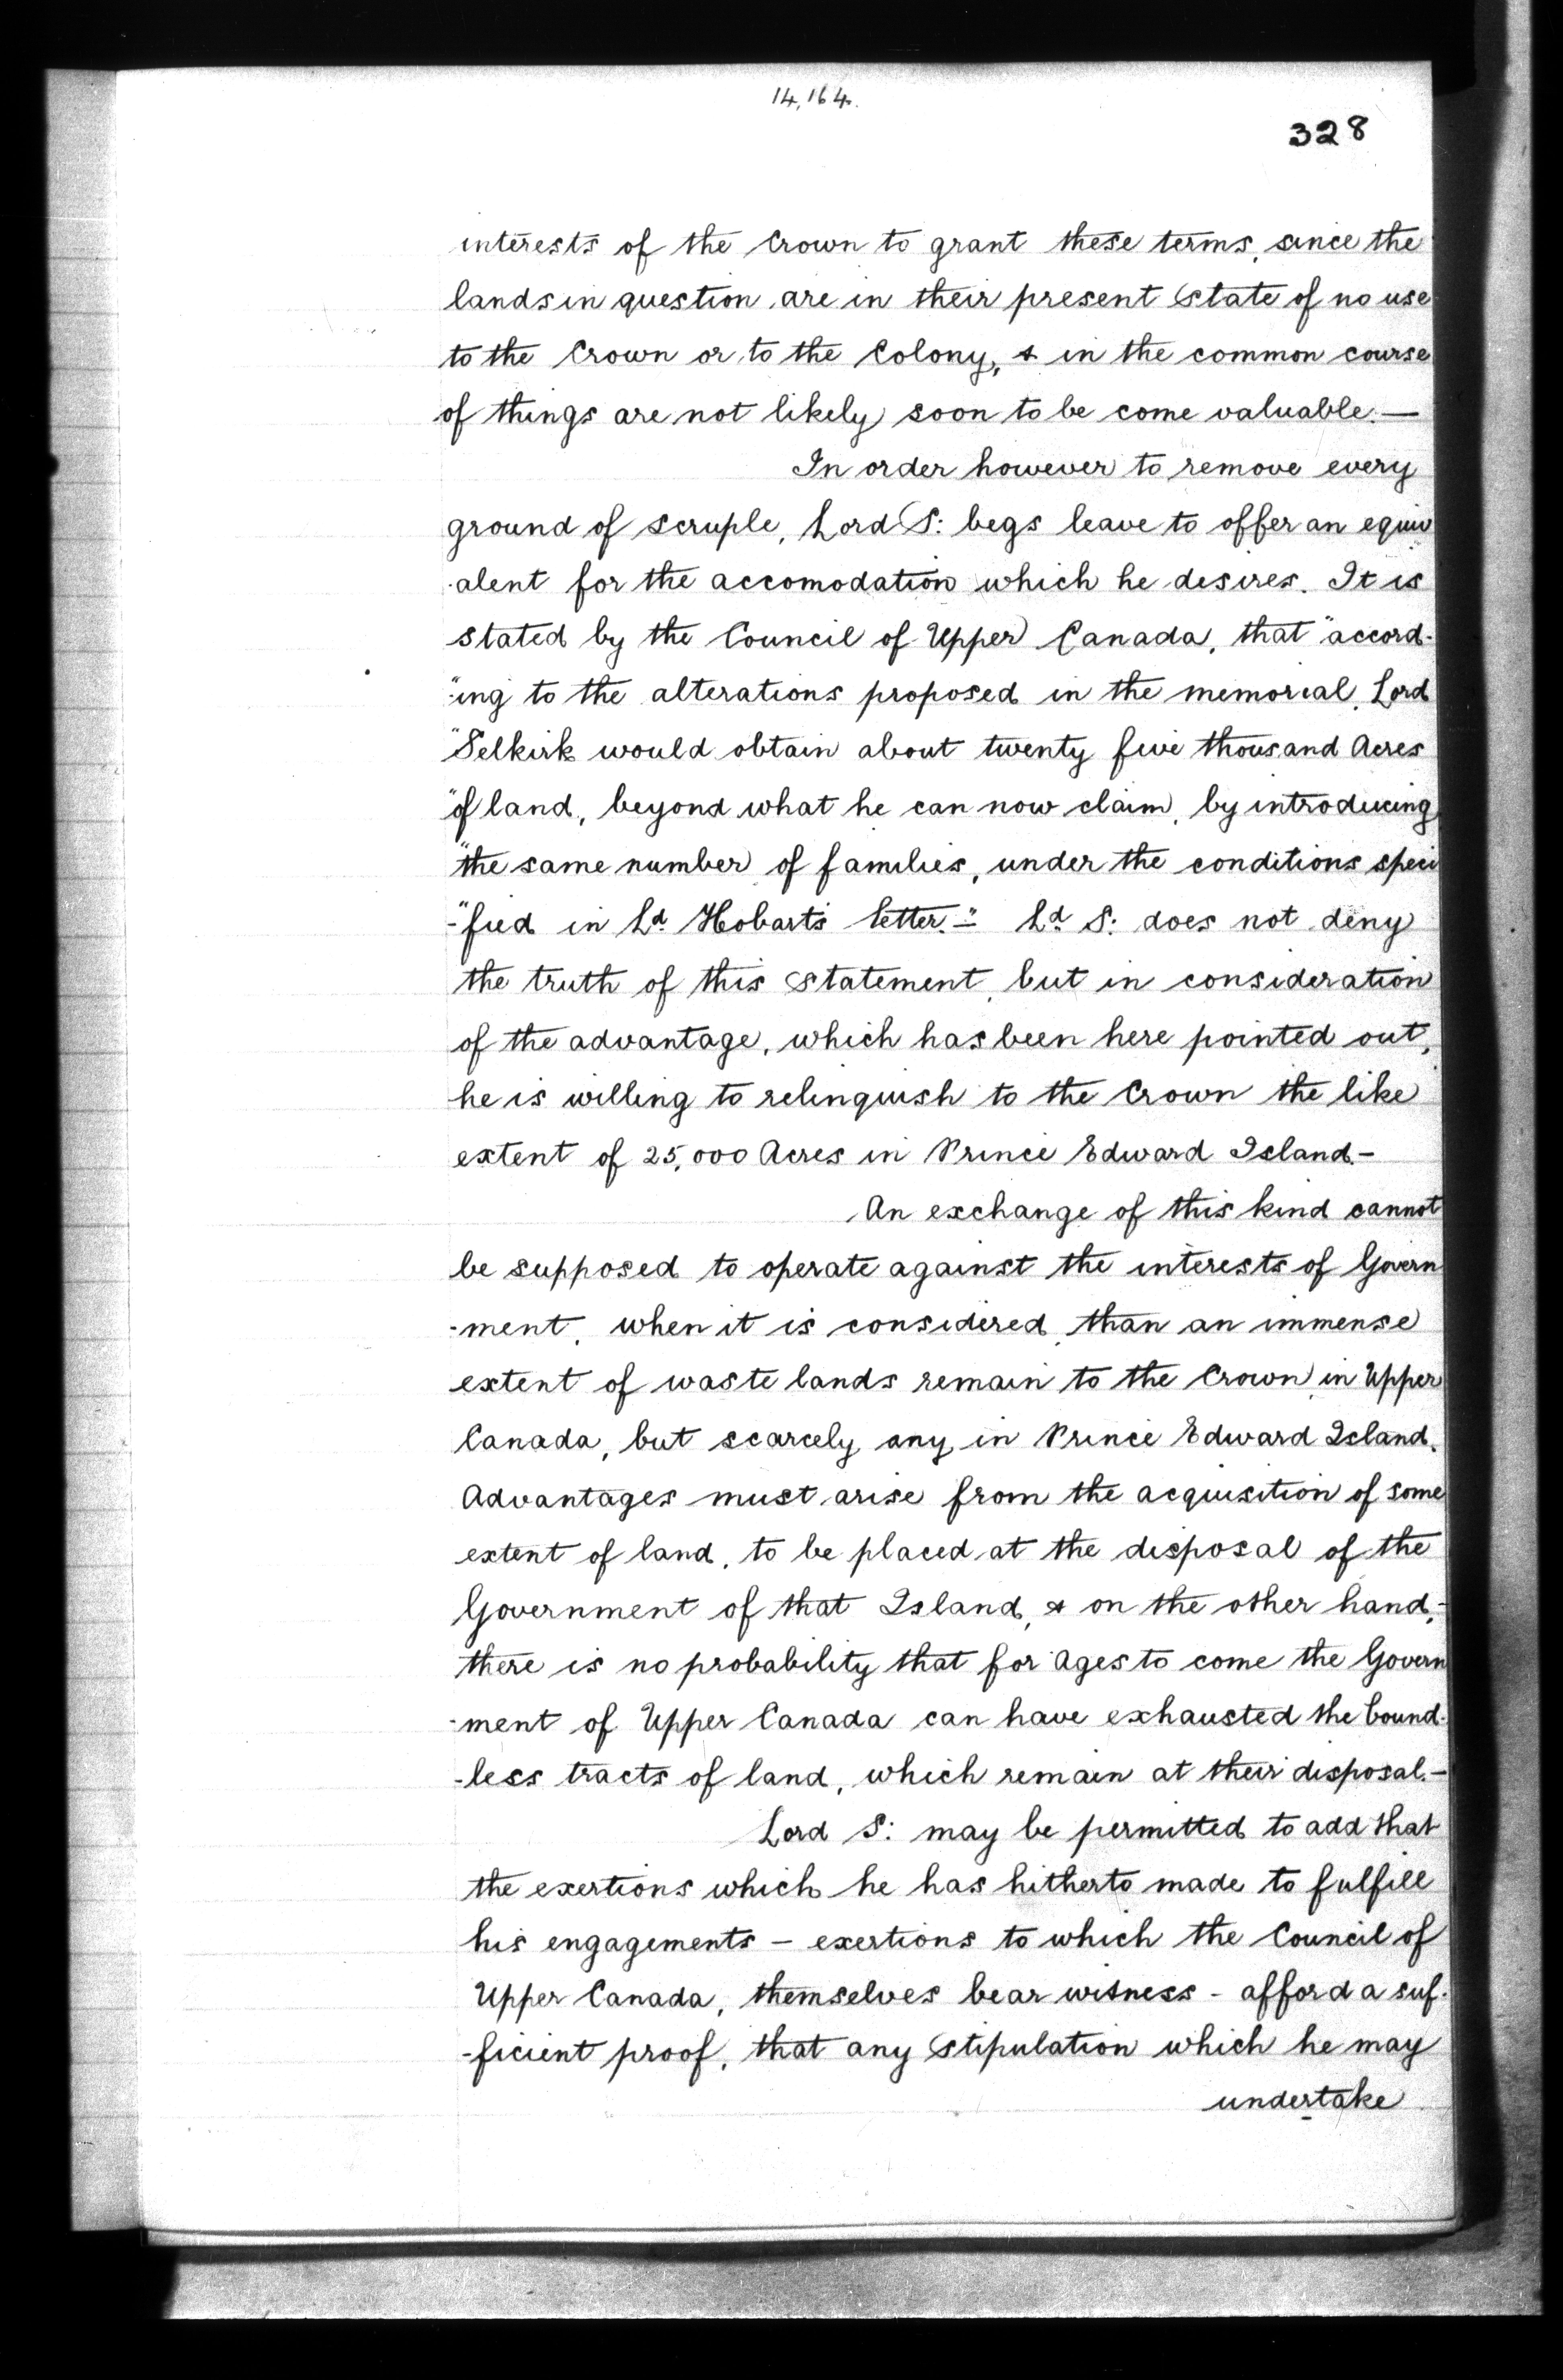 14,164.
328
interests of the Crown to grant these terms, since the
lands in question are in their present state of no use
to the Crown or to the Colony, & in the common course
of things are not likely soon to be come valuable.—
In order however to remove every
ground of scruple, Lord S: begs leave to offer an equiv
-alent for the accomodation which he desires. It is
stated by the Council of Upper Canada, that "accord-
"ing to the alterations proposed in the memorial, Lord
"Selkirk would obtain about twenty five thousand Acres
"of land, beyond what he can now claim, by introducing
"the same number of families, under the conditions speci
-"fied in Ld. Hobart's letter.—" Ld. S: does not deny
the truth of this statement, but in consideration
of the advantage, which has been here pointed out,
he is willing to relinquish to the Crown the like
extent of 25,000 Acres in Prince Edward Island.—
An exchange of this kind cannot
be supposed to operate against the interests of Govern
-ment, when it is considered, than an immense
extent of waste lands remain to the Crown in Upper
Canada, but scarcely any in Prince Edward Island.
Advantages must arise from the acquisition of some
extent of land, to be placed at the disposal of the
Government of that Island, & on the other hand,-
there is no probability that for Ages to come the Govern
-ment of Upper Canada can have exhausted the bound-
-less tracts of land, which remain at their disposal.—
Lord S: may be permitted to add that
the exertions which he has hitherto made to fulfill
his engagements — exertions to which the Council of
Upper Canada, themselves bear witness - afford a suf-
-ficient proof, that any stipulation which he may
undertake